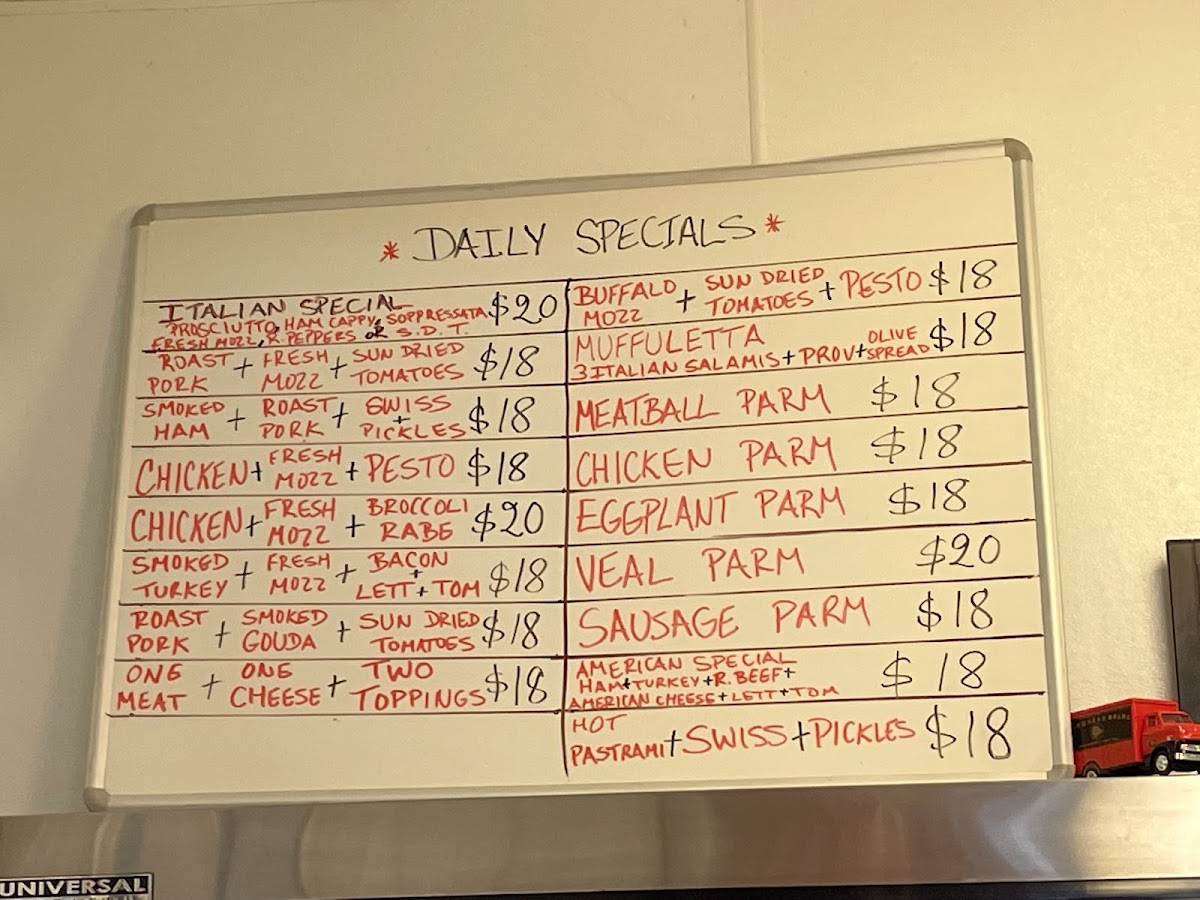 * DAILY SPECIALS *
ITALIAN SPECIAL
PROSCIUTTO, HAM CAPPY, SOPPRESSATA
FRESH MOZZ, R. PEPPERS OR S.D.T. $20
ROAST PORK + FRESH MOZZ + SUN DRIED TOMATOES $18
SMOKED HAM + ROAST PORK + SWISS + PICKLES $18
CHICKEN + FRESH MOZZ + PESTO $18
CHICKEN + FRESH MOZZ + BROCCOLI RABE $20
SMOKED TURKEY + FRESH MOZZ + BACON + LETT + TOM $18
ROAST PORK + SMOKED GOUDA + SUN DRIED TOMATOES $18
ONE MEAT + ONE CHEESE + TWO TOPPINGS $18
BUFFALO MOZZ + SUN DRIED TOMATOES + PESTO $18
MUFFULETTA
3 ITALIAN SALAMIS + PROV + OLIVE SPREAD $18
MEATBALL PARM $18
CHICKEN PARM $18
EGGPLANT PARM $18
VEAL PARM $20
SAUSAGE PARM $18
AMERICAN SPECIAL
HAM + TURKEY + R. BEEF +
AMERICAN CHEESE + LETT + TOM $18
HOT PASTRAMI + SWISS + PICKLES $18
UNIVERSAL